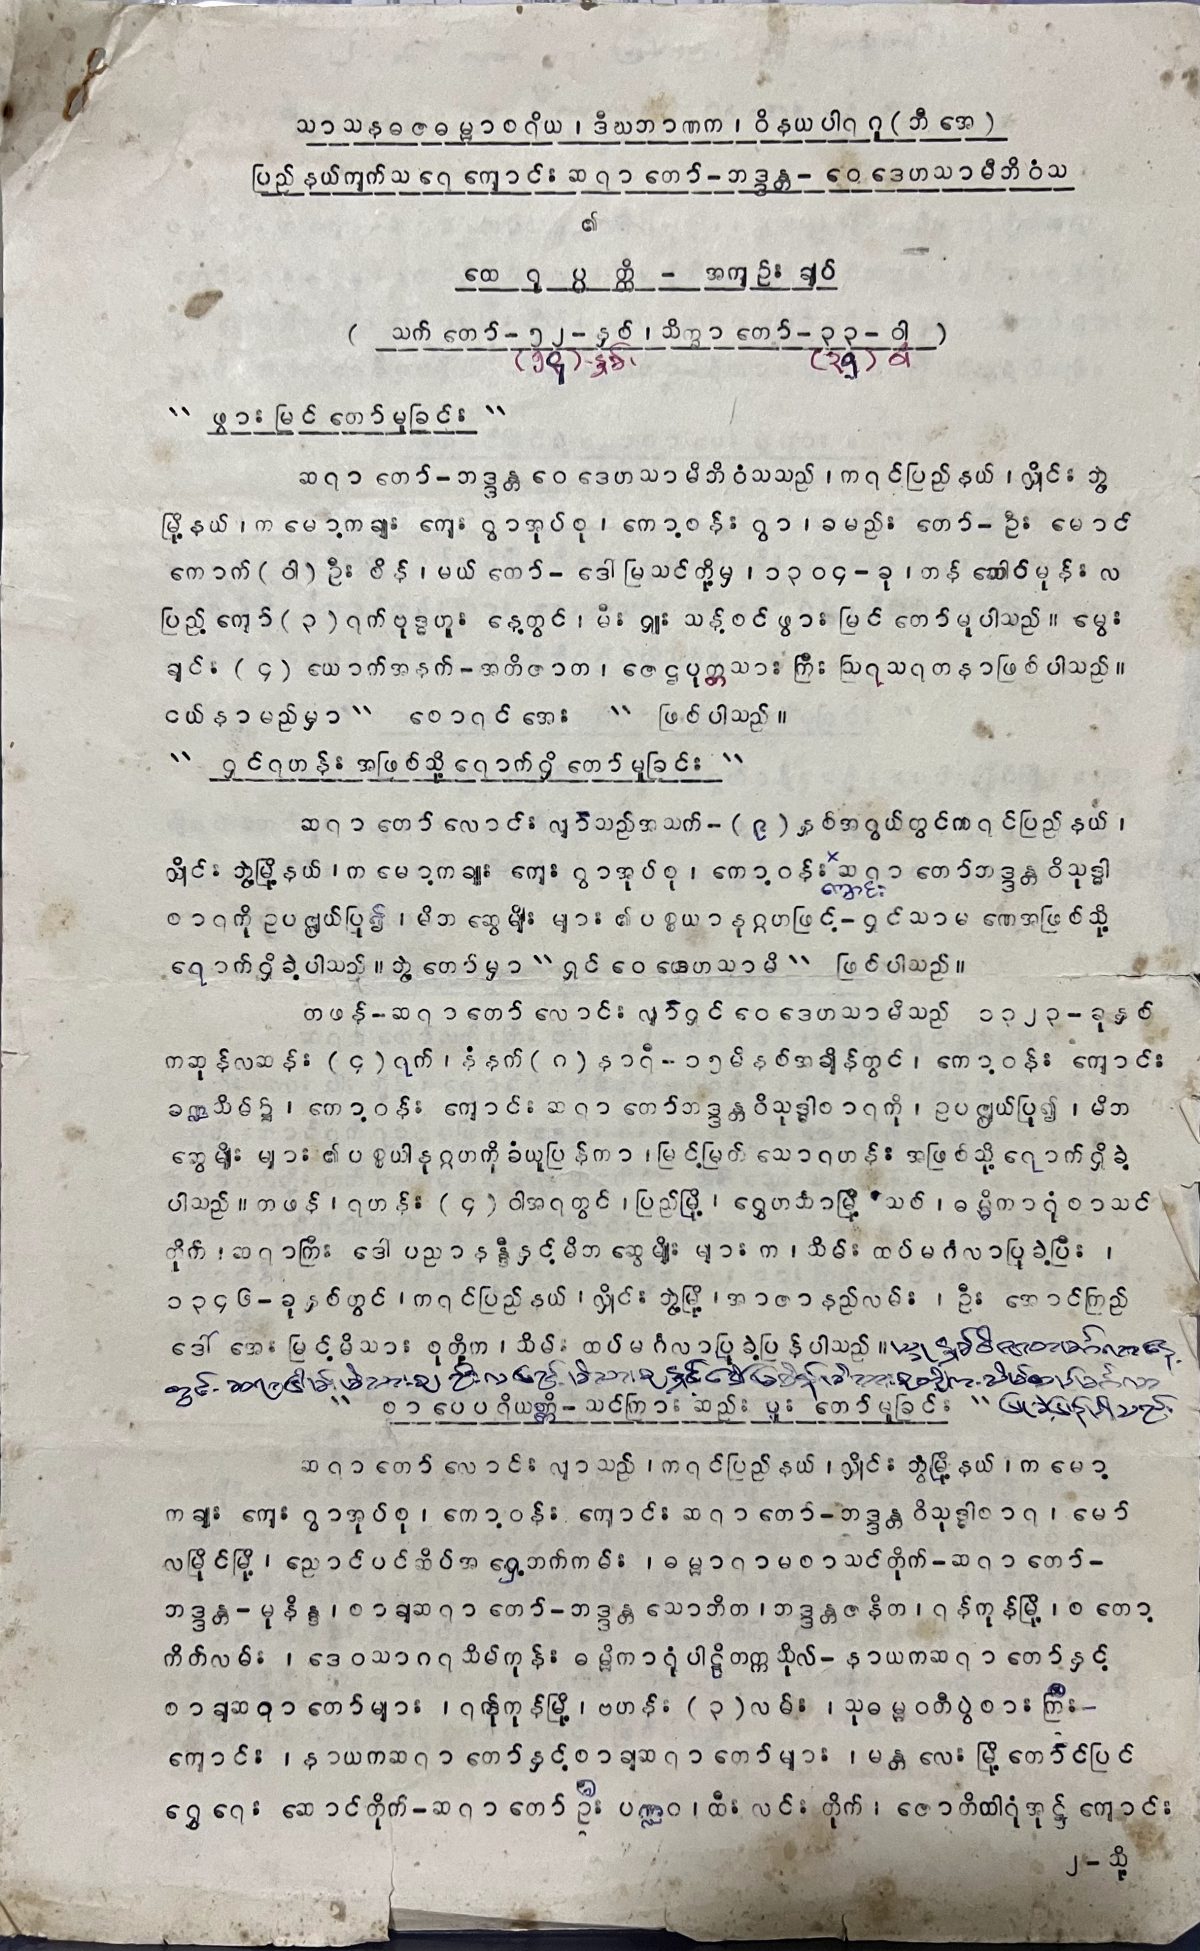 သာသနဓဇဓမ္မာစရိယ၊ ဒီဃဘာဏက၊ ဝိနယပါရဂူ(ဘီအေ)
ပြည်နယ်ကျက်သရေကျောင်းဆရာတော်-ဘဒ္ဒန္တ-ဝေဒေဟသာမီဘိဝံသ
၏
ထေရုပ္ပတ္တိ - အကျဉ်းချုပ်
( သက်တော်-၅၂-နှစ်၊ သိက္ခာတော်-၃၃-ဝါ )
(၅၄)-နှစ်၊ (၃၅) ဝါ
`` ဖွားမြင်တော်မူခြင်း ``
ဆရာတော်-ဘဒ္ဒန္တဝေဒေဟသာမိဘိဝံသသည်၊ ကရင်ပြည်နယ်၊ လှိုင်းဘွဲ့
မြို့နယ်၊ ကမော့ကချူးကျေးရွာအုပ်စု၊ ကော့စန်းရွာ၊ ခမည်းတော်-ဦးမောင်
ကောက်(ဝါ)ဦးစိန်၊ မယ်တော်-ဒေါ်မြသင်တို့မှ၊ ၁၃၀၄-ခု၊ တန်ဆောင်မုန်းလ
ပြည့်ကျော်(၃)ရက်ဗုဒ္ဓဟူးနေ့တွင်၊ မီးရှူးသန့်စင်ဖွားမြင်တော်မူပါသည်။ မွေး
ချင်း(၄)ယောက်အနက်-အတိဇာတ၊ ဇေဋ္ဌပုတ္တသားကြီးဩရသရတနာဖြစ်ပါသည်။
ငယ်နာမည်မှာ`` စောရင်အေး `` ဖြစ်ပါသည်။
`` ရှင်ရဟန်းအဖြစ်သို့ရောက်ရှိတော်မူခြင်း ``
ဆရာတော်လောင်းလျာ်သည်အသက်-(၉)နှစ်အရွယ်တွင်ကရင်ပြည်နယ်၊
လှိုင်းဘွဲ့မြို့နယ်၊ ကမော့ကချူးကျေးရွာအုပ်စု၊ ကော့ဝန်းˣဆရာတော်ဘဒ္ဒန္တဝိသုဒ္ဓါ
ကျောင်း
စာရကိုဥပဇ္ဈယ်ပြု၍၊ မိဘဆွေမျိုးများ၏ပစ္စယာနုဂ္ဂဟဖြင့်-ရှင်သာမဏေအဖြစ်သို့
ရောက်ရှိခဲ့ပါသည်။ ဘွဲ့တော်မှာ``ရှင်ဝေဒေဟသာမိ`` ဖြစ်ပါသည်။
တဖန်-ဆရာတော်လောင်းလျာ်ရှင်ဝေဒေဟသာမိသည် ၁၃၂၃-ခုနှစ်
ကဆုန်လဆန်း(၄)ရက်၊ နံနက်(၈)နာရီ-၁၅မိနစ်အချိန်တွင်၊ ကော့ဝန်းကျောင်း
ခဏ္ဍသိမ်၌၊ ကော့ဝန်းကျောင်းဆရာတော်ဘဒ္ဒန္တဝိသုဒ္ဓါစာရကို၊ ဥပဇ္ဈယ်ပြု၍၊ မိဘ
ဆွေမျိုးများ၏ပစ္စယါနုဂ္ဂဟကိုခံယူပြန်ကာ၊ မြင့်မြတ်သောရဟန်းအဖြစ်သို့ရောက်ရှိခဲ့
ပါသည်။ တဖန်၊ ရဟန်း(၄)ဝါအရတွင်၊ ပြည်မြို့၊ ရွှေဟင်္သာမြို့သစ်၊ ဓမ္မိကာရုံစာသင်
တိုက်၊ ဆရာကြီးဒေါ်ပညာနန္ဒီနှင့်မိဘဆွေမျိုးများက၊ သိမ်းထပ်မင်္ဂလာပြုခဲ့ပြီး၊
၁၃၄၆-ခုနှစ်တွင်၊ ကရင်ပြည်နယ်၊ လှိုင်းဘွဲ့မြို့၊ အာဇာနည်လမ်း၊ ဦးအောင်ကြည်
ဒေါ်အေးမြင့်မိသားစုတို့က၊ သိမ်းထပ်မင်္ဂလာပြုခဲ့ပြန်ပါသည်။
ပြုခဲ့ပြန်ပါသည်
`` စာပေပရိယတ္တိ-သင်ကြားဆည်းပူးတော်မူခြင်း ``
ဆရာတော်လောင်းလျာသည်၊ ကရင်ပြည်နယ်၊ လှိုင်းဘွဲ့မြို့နယ်၊ ကမော့
ကချူးကျေးရွာအုပ်စု၊ ကော့ဝန်းကျောင်းဆရာတော်-ဘဒ္ဒန္တဝိသုဒ္ဓါစာရ၊ မော်
လမြိုင်မြို့၊ ညောင်ပင်ဆိပ်အရှေ့ဘက်ကမ်း၊ ဓမ္မာရာမစာသင်တိုက်-ဆရာတော်-
ဘဒ္ဒန္တ-မုနိန္ဒ၊ စာချဆရာတော်-ဘဒ္ဒန္တသောဘိတ၊ ဘဒ္ဒန္တဇနိတ၊ ရန်ကုန်မြို့၊ စတော့
ကိတ်လမ်း၊ ဒေဝသာဂရသိမ်ကုန်းဓမ္မိကာရုံပါဠိတက္ကသိုလ်-နာယကဆရာတော်နှင့်
စာချဆရာတော်များ၊ ရန်ကုန်မြို့၊ ဗဟန်း(၃)လမ်း၊ သုဓမ္မဝတီပွဲစားကြီး-
ကျောင်း၊ နာယကဆရာတော်နှင့်စာချဆရာတော်များ၊ မန္တလေးမြို့တော်င်ပြင်
ရွှေရေးဆောင်တိုက်-ဆရာတော်ဦးပဏ္ဍဝ၊ ထီးလင်းတိုက်၊ ဇောတိထါရုံအုဋ်ကျောင်း
၂-သို့